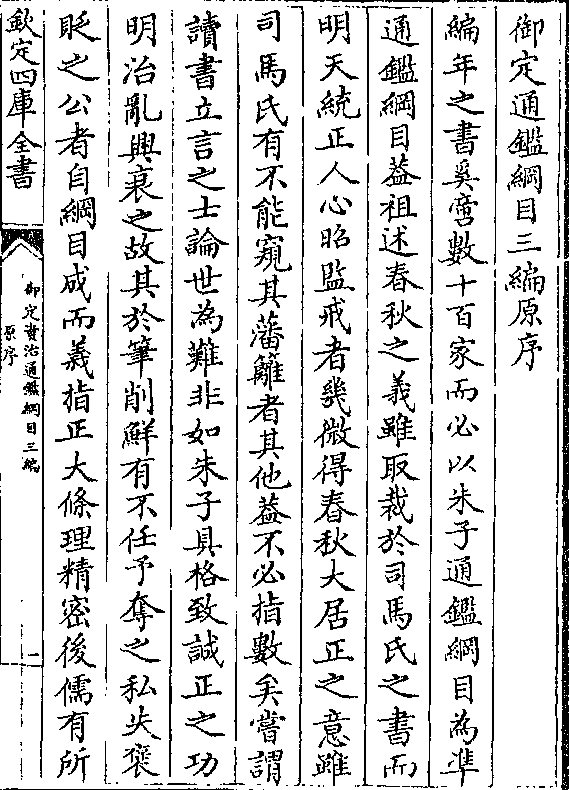 御定通鑑綱目三編原序
編年之書奚啻數十百家而必以朱子通鑑綱目為準
通鑑綱目葢祖述春秋之義雖取裁於司馬氏之書而
明天統正人心昭監戒者幾微得春秋大居正之意雖
司馬氏有不能窺其藩籬者其他葢不必指數矣嘗謂
讀書立言之士論世為難非如朱子具格致誠正之功
明治亂興衰之故其於筆削鮮有不任予奪之私失褒
貶之公者自綱目成而義指正大條理精密後儒有所
欽定四庫全書
御定資治通鑑綱目三編
原序
一